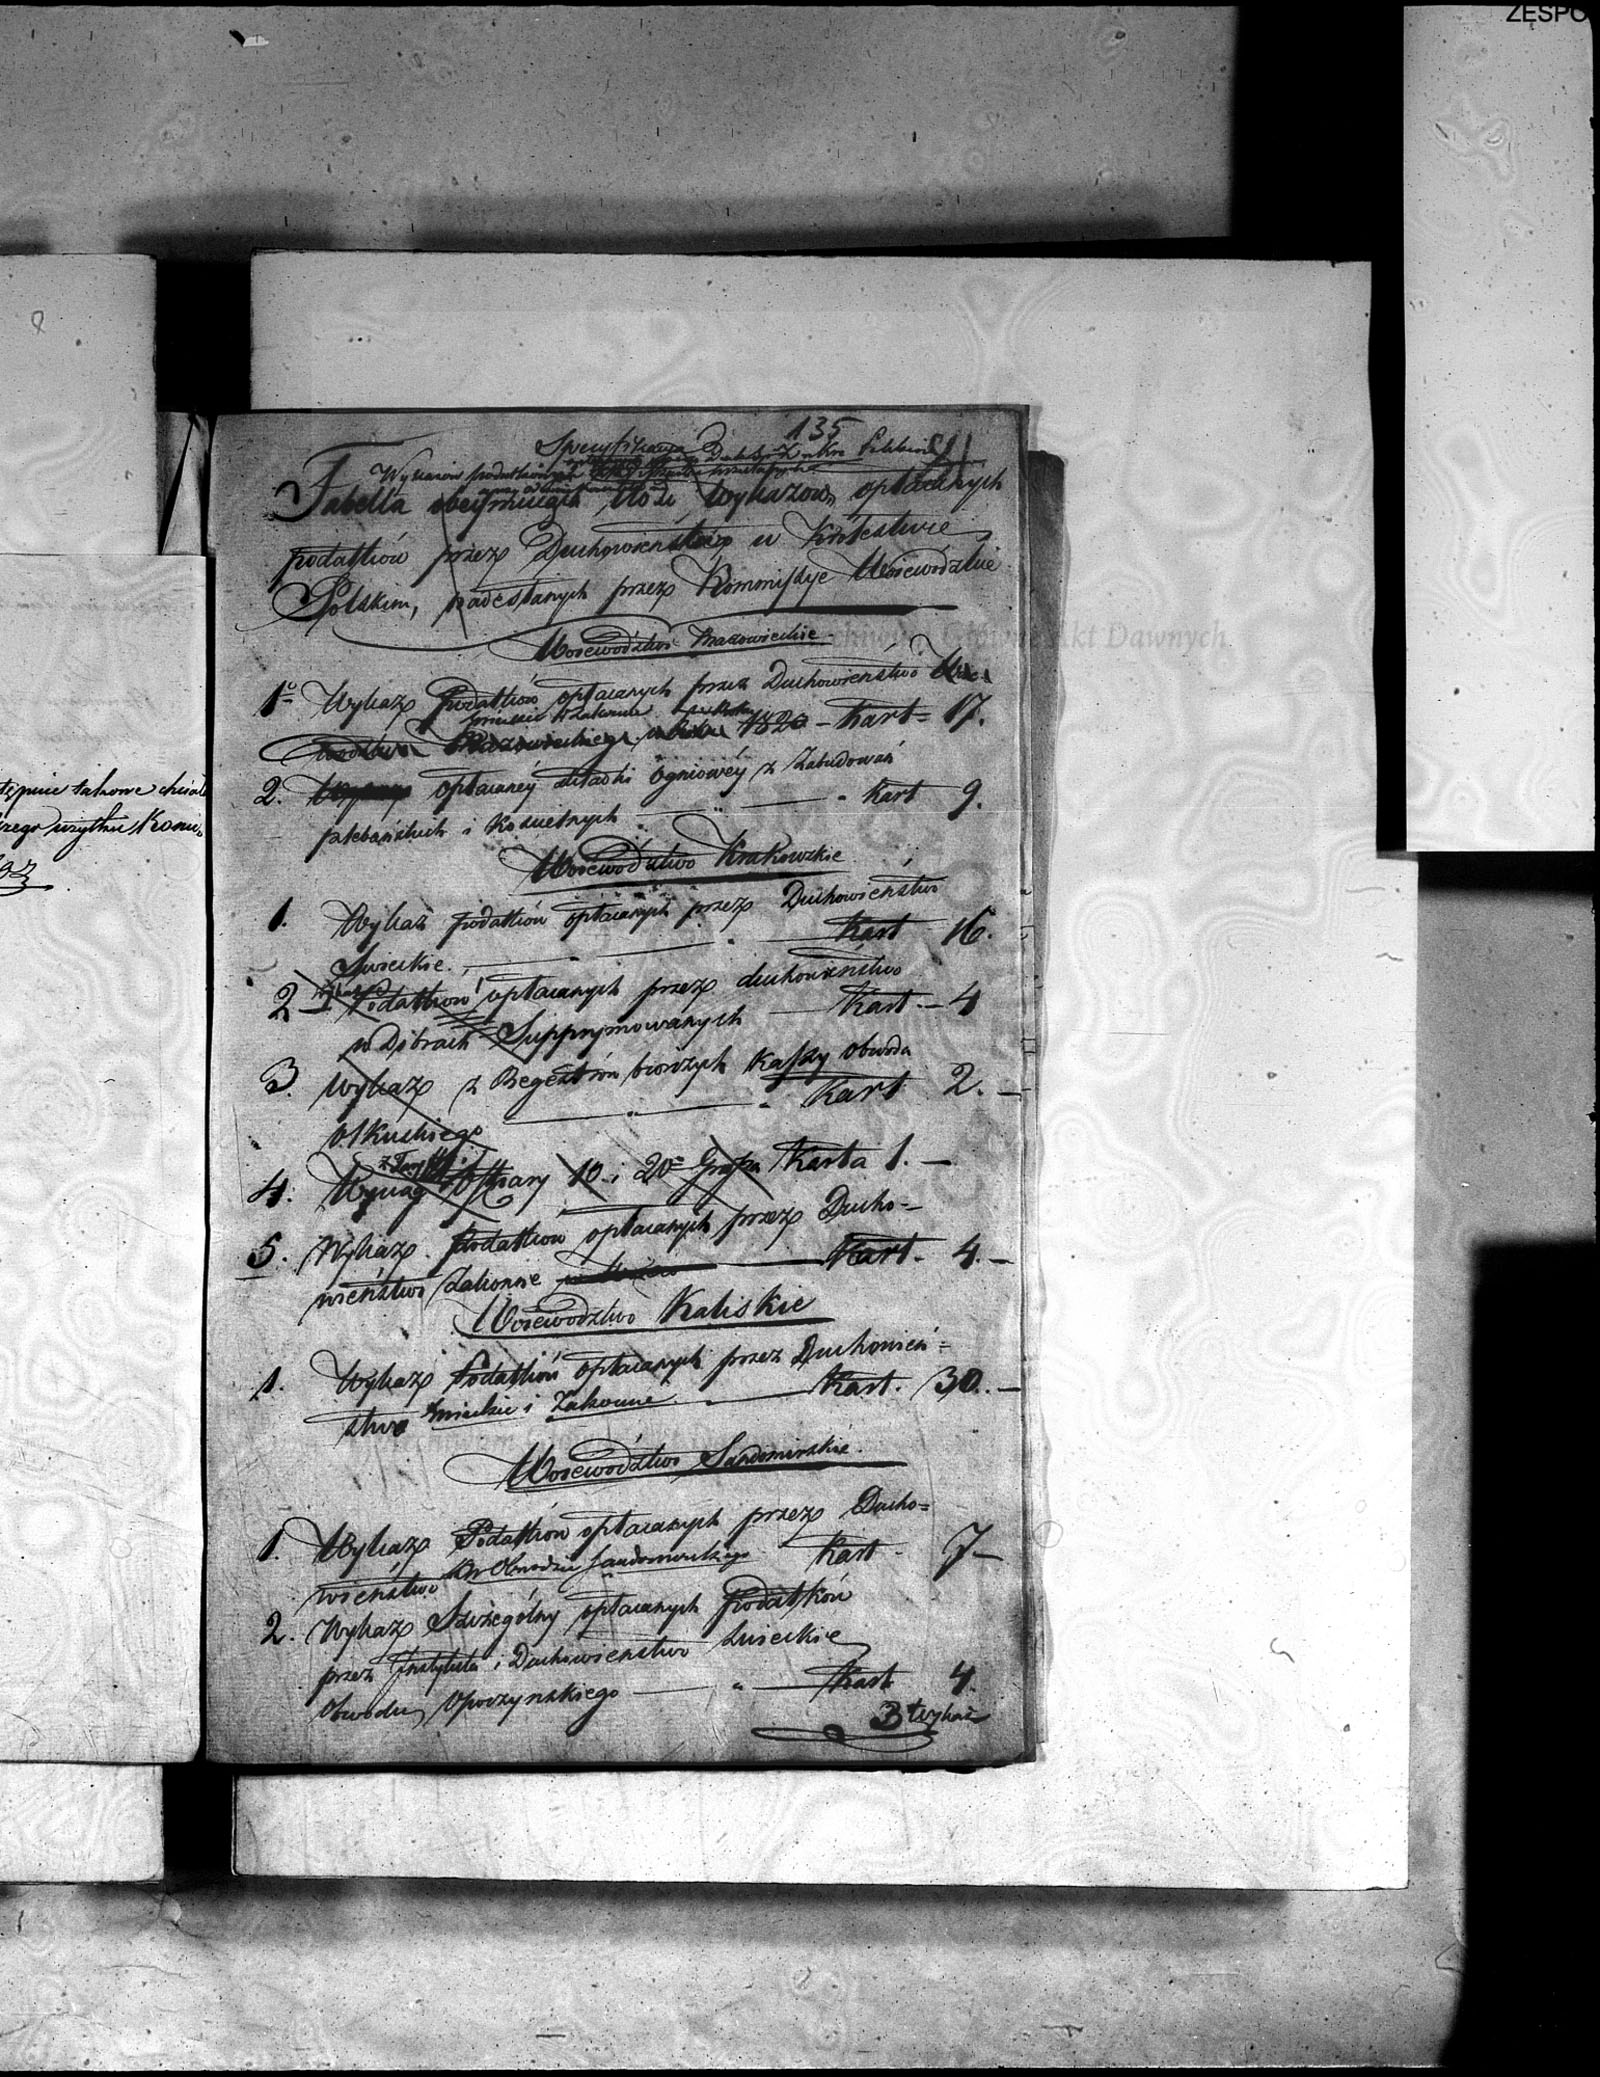 ZESPO
135
Specyfikacya
Wykazów podatkowych
Tabella obeymuiąca Ilość Wykazow opłacanych
podatków przez Duchowieństwo w Królestwie
Polskim, nadesłanych przez Kommissye Woiewódzkie
Archiwum Główne Akt Dawnych
Woiewództwo Mazowieckie
1º Wykaz Podatków opłacanych przez Duchowieństwo
Swieckie i Zakonne w Roku
Mazowieckiego w Roku 1820 – Kart = 17.
2. opłacaney składki Ogniowéy z Zabudowań
plebańskich i Kościelnych — " Kart 9.
Woiewództwo Krakowskie
1. Wykaz podatków opłacanych przez Duchowieństwo
Swieckie. — " — Kart 16.
2 Podatków opłacanych przez duchowieństwo
w Dobrach Supprymowanych — Kart. – 4
3. Wykaz z Regestrów biorczych Kassy obwodu
Olkuskiego — " — " Kart 2. –
4. Wyciąg z Taryffy Ofiary 10. i 20= Grosza Karta 1. —
5. Wykaz Podatków opłacanych przez Ducho=
wieństwo Zakonne — Kart. 4. –
Woiewodztwo Kaliskie
1. Wykaz Podatków opłacanych przez Duchowień=
stwo Swieckie i Zakonne — Kart. 30. –
Woiewództwo Sandomirskie.
1. Wykaz Podatków opłacanych przez Ducho=
wieństwo w Obwodzie Sandomirskiego Kart 7 –
2. Wykaz Szczególny opłacanych Podatków
przez Instytuta i Duchowieństwo Swieckie
Obwodu Opoczynskiego — " — Kart 4.
3 Wykaz
tępnie takowe
szego użytku Komis